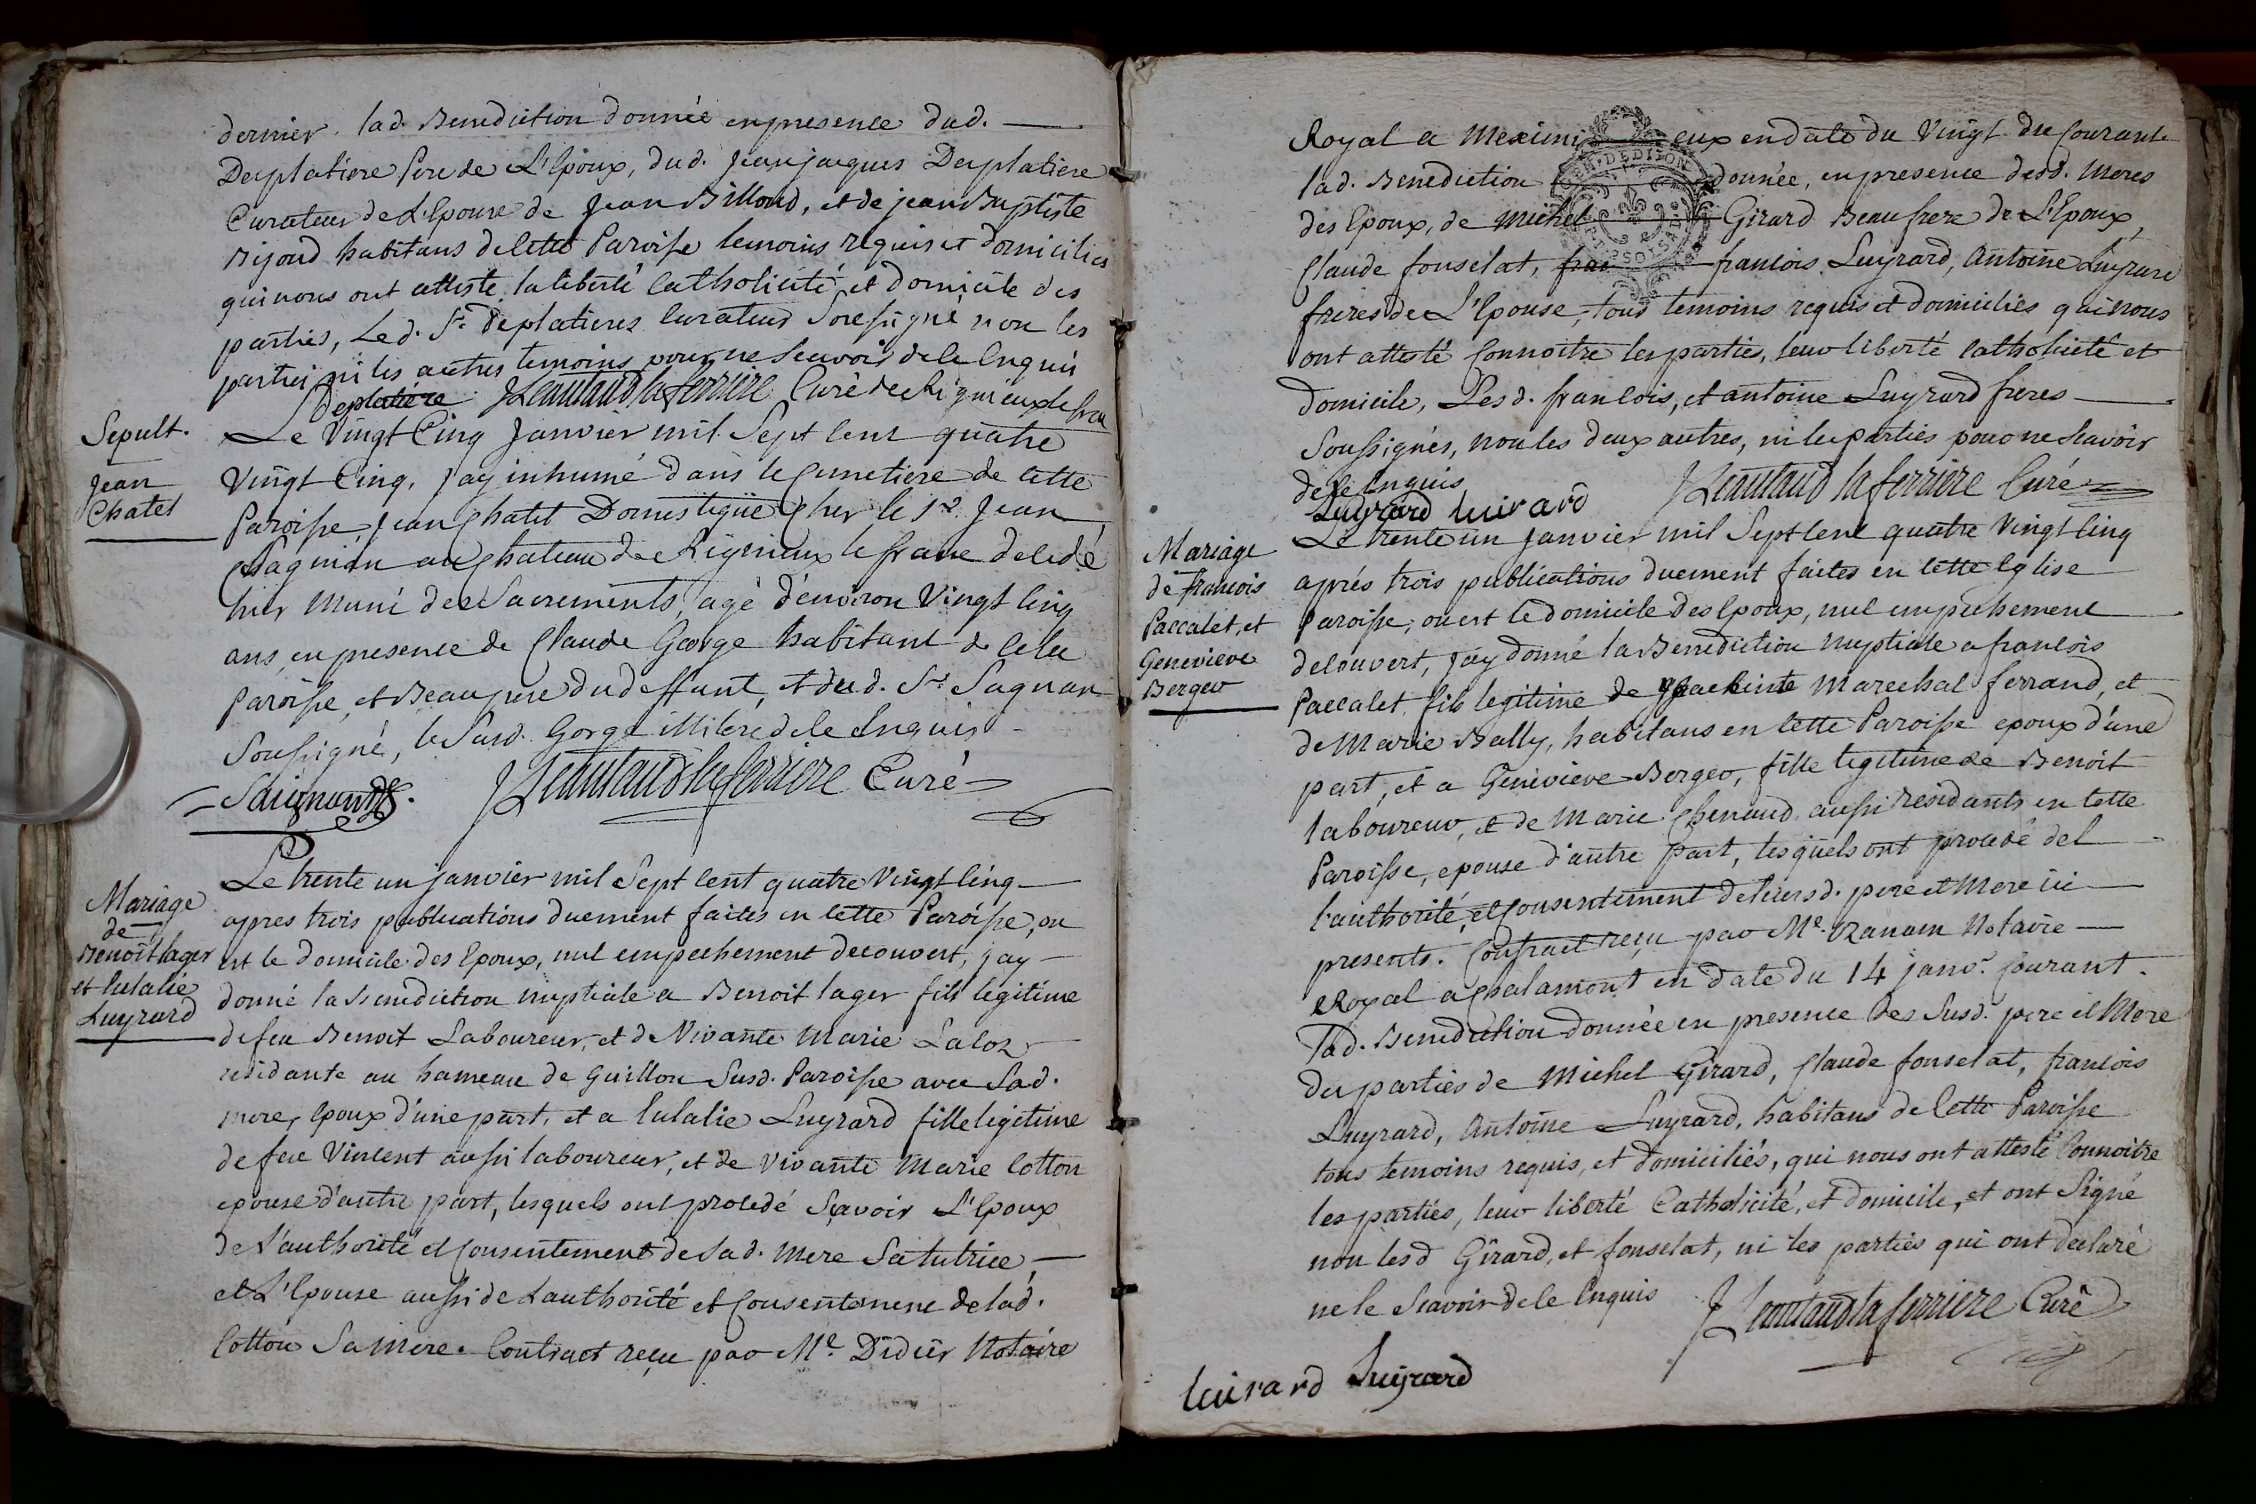 dernier. lad. Benediction donnée en presence dud.
Deplatiere Pere de L'Epoux, dud. Jean jacques Deplatiere
Curateur de L'Epouse de Jean Billoud, et de jean Baptiste
Bijoud habitans de Cette Paroisse temoins requis et domiciliés
qui nous ont attesté la liberté Catholicité et domicile des
parties, Le d. Sr. Deplatieres Curateur Soussigné non les
parties ni les autres temoins pour ne Scavoir de le Enquis
Deplatiére JLeautaud la ferriere Curé de Rigneux le franc
Sepult.
Jean
Chatel
Le Vingt Cinq Janvier mil Sept Cent quatre
Vingt Cinq, jay inhumé dans le Cimetiere de Cette
Paroisse Jean Chatel Domestique Cher le Sr Jean
Sagnian au Chateau de Rignieux le franc decedé
hier Muni des Sacrements, agé d'environ Vingt Cinq
ans en presence de Claude Gorge habitant de Cette
Paroisse, et Beaupere du deffunt, et dud. Sr Sagnan
Soussigné, le Susd. Gorge illiteré de le Enquis
JLeautaud la ferriere Curé
Mariage
de
Benoit lager
et Eulalie
Luyrard
Le trente un janvier mil Sept Cent quatre Vingt Cinq
apres trois publications duement faites en Cette Paroisse, ou
est le domicile des Epoux, nul empechement decouvert, jay
donné la Benediction nuptiale a Benoit lager fils legitime
de feu Benoit Laboureur, et de Vivante Marie Laloz
residante au hameau de Guillon Susd. Paroisse avec Sad.
mere, Epoux d'une part, et a Eulalie Luyrard fille legitime
de feu Vincent aussi laboureur, et de Vivante Marie Cotton
epouse d'autre part, lesquels ont procedé Sçavoir L'Epoux
de l'authorité et Consentement de Sad. Mere Sa tutrice,
et L'Epouse aussi de L'authorité et Consentement de lad.
Cotton Sa Mere. Contract reçu par Me. Didier Notaire
Royal a Meximieux en date du Vingt du Courant
lad. Benediction donnée, en presence desd. Meres
des Epoux, de Michel Girard Beaufrere de L'Epoux,
Claude fonselat, fran francois Luyrard, Antoine Luyrard
freres de L'Epouse, tous temoins requis et domiciliés qui nous
ont attesté Connoitre les parties, leur liberté Catholicité et
domicile, Les d. francois, et antoine Luyrard freres
Soussignés, non les deux autres, ni les parties pour ne Scavoir
de le Enquis
Luyrard luirard JLeautaud la ferriere Curé
Mariage
de francois
Paccalet, et
Genevieve
Berger
Le trente un Janvier mil Sept Cent quatre Vingt Cinq
aprés trois publications duement faites en Cette Eglise
Paroisse, ou est le domicile des Epoux, nul empechement
decouvert, j'ay donné la Benediction nuptiale a francois
Paccalet fils legitime de hyacinte Marechal ferrand, et
de Marie Bally, habitans en Cette Paroisse epoux d'une
part, et a Genevieve Berger, fille legitime de Benoit
laboureur, et de Marie Chenaud aussi residants en Cette
Paroisse, epouse d'autre part, lesquels ont procedé de l
l'authorité, et Consentement de leurs d. pere et Mere ici
presents. Contract reçu par Me. Ozanam Notaire
Royal a Chalamont en date du 14 janvr. Courant.
lad. Benediction donnée en presence des Susd. pere et Mere
des parties de Michel Girard, Claude fonselat, francois
Luyrard, Antoine Luyrard, habitans de Cette Paroisse
tous temoins requis, et domiciliés, qui nous ont attesté Connoitre
les parties, leur liberté Catholicité, et domicile, et ont Signé
non les d Girard, et fonselat, ni les parties qui ont declaré
ne le Scavoir de le Enquis JLeautaud la ferriere Curé
luirard Luyrard